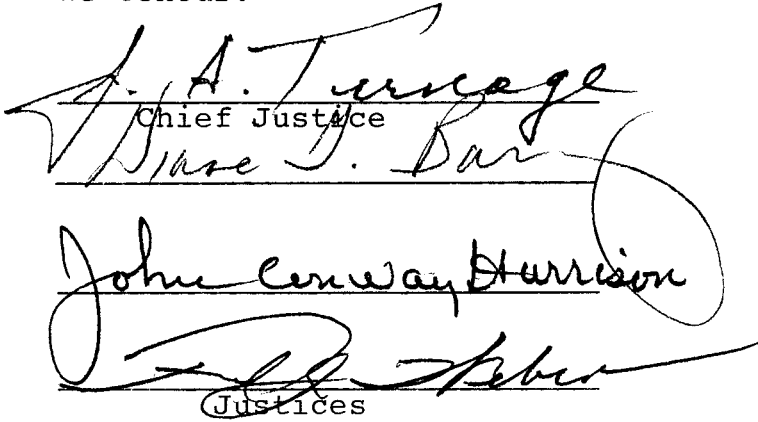 J. A. Turnage
Chief Justice
Diane G. Barz
John Conway Harrison
Justices